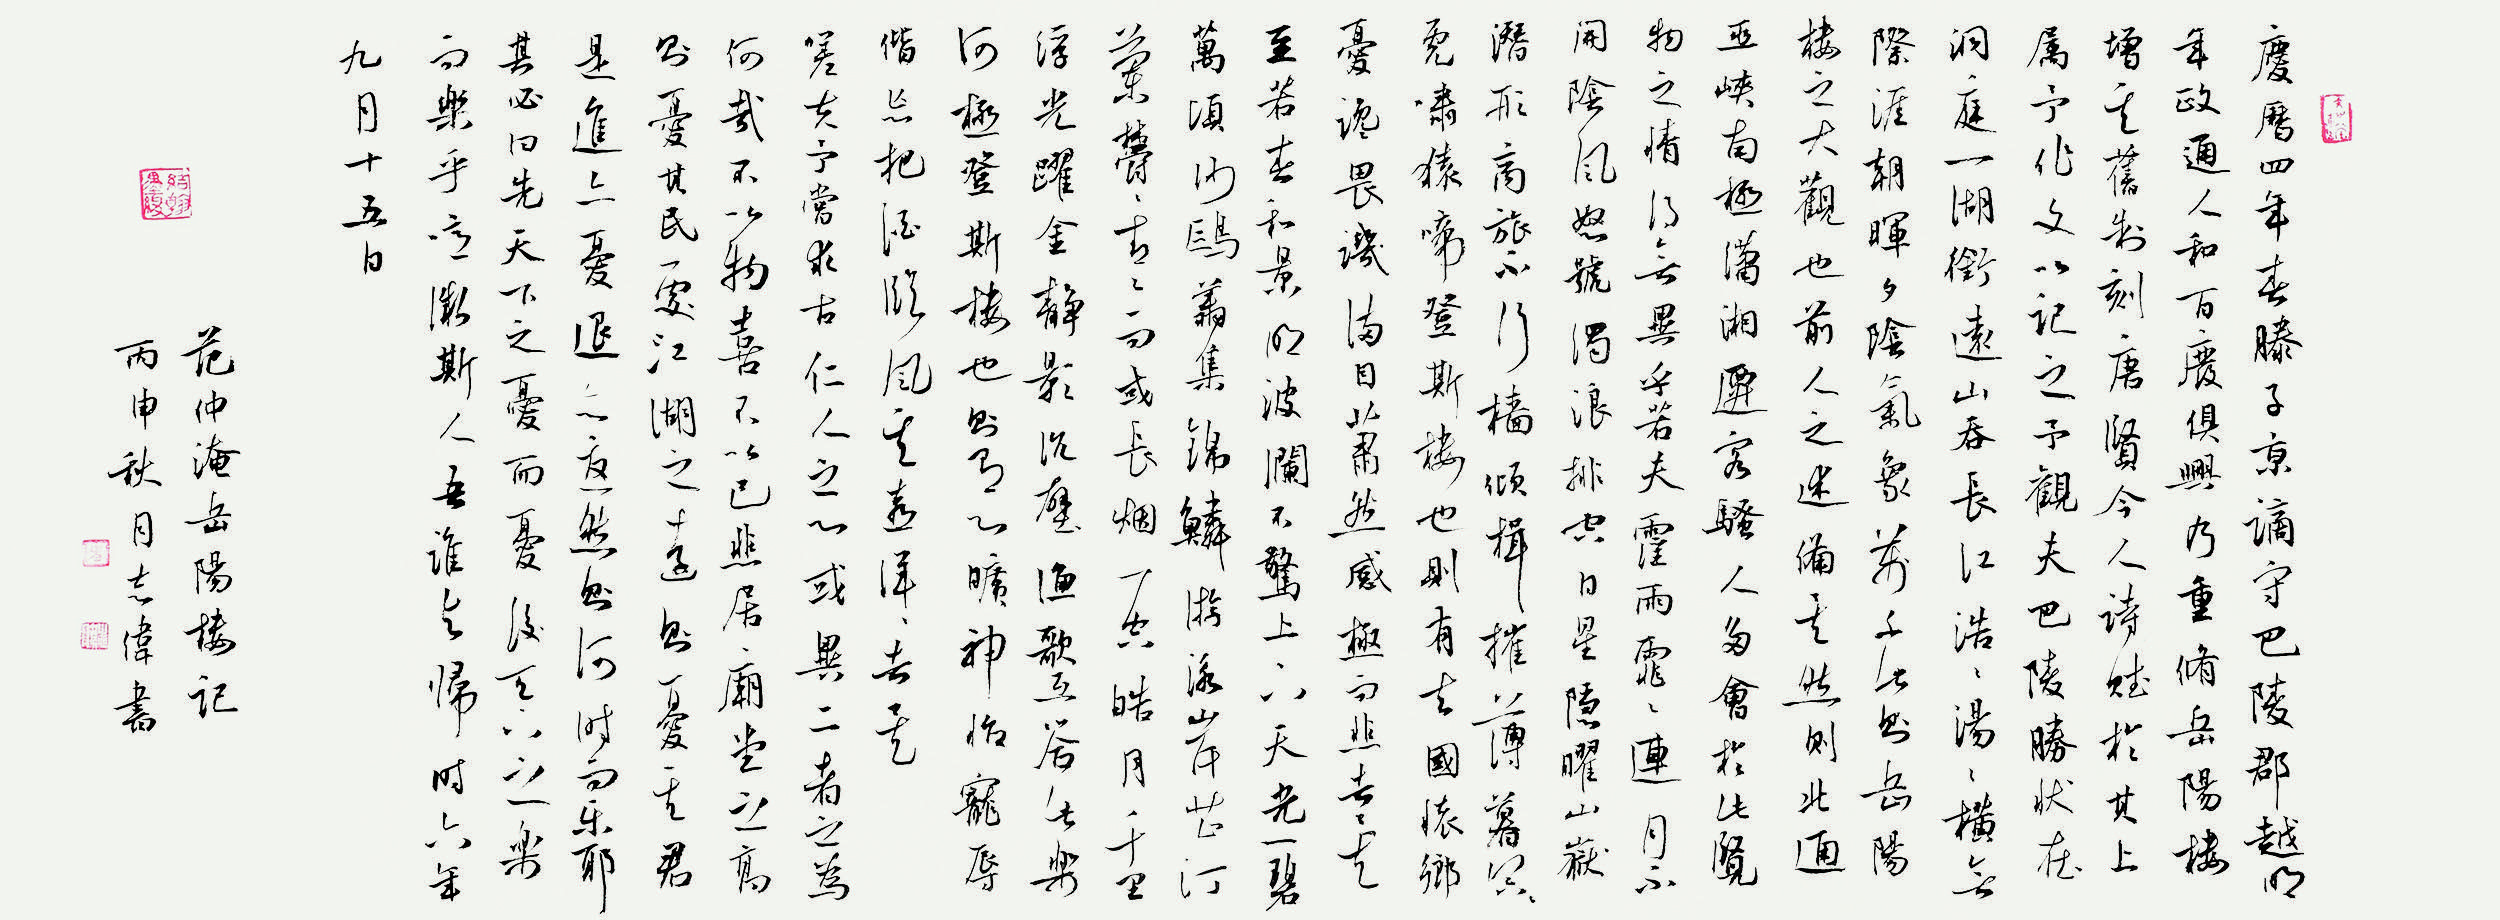 慶曆四年春滕子京謫守巴陵郡越明
年政通人和百廢俱興乃重脩岳陽樓
增其舊制刻唐賢今人詩賦於其上
属予作文以記之予觀夫巴陵勝状在
洞庭一湖銜遠山吞長江浩〻湯〻橫無
際涯朝暉夕陰氣象萬千此則岳陽
樓之大觀也前人之述備矣然則北通
巫峽南極瀟湘遷客騷人多會於此覽
物之情得無異乎若夫霪雨霏〻連月不
開陰風怒號濁浪排空日星隱曜山嶽
潛形商旅不行檣傾楫摧薄暮冥〻
虎嘯猿啼登斯樓也則有去國懷鄉
憂讒畏譏滿目蕭然感極而悲者矣
至若春和景明波瀾不驚上下天光一碧
萬頃沙鷗翔集錦鱗游泳岸芷汀
蘭鬱〻青〻而或長烟一空皓月千里
浮光躍金静影沉璧漁歌互答此樂
何極登斯樓也則有心曠神怡寵辱
偕忘把酒臨風其喜洋〻者矣
嗟夫予嘗求古仁人之心或異二者之為
何哉不以物喜不以己悲居廟堂之高
則憂其民處江湖之遠則憂其君
是進亦憂退亦憂然則何時而樂耶
其必曰先天下之憂而憂後天下之樂
而樂乎噫微斯人吾誰與歸時六年
九月十五日
范仲淹岳陽樓記
丙申秋月志偉書